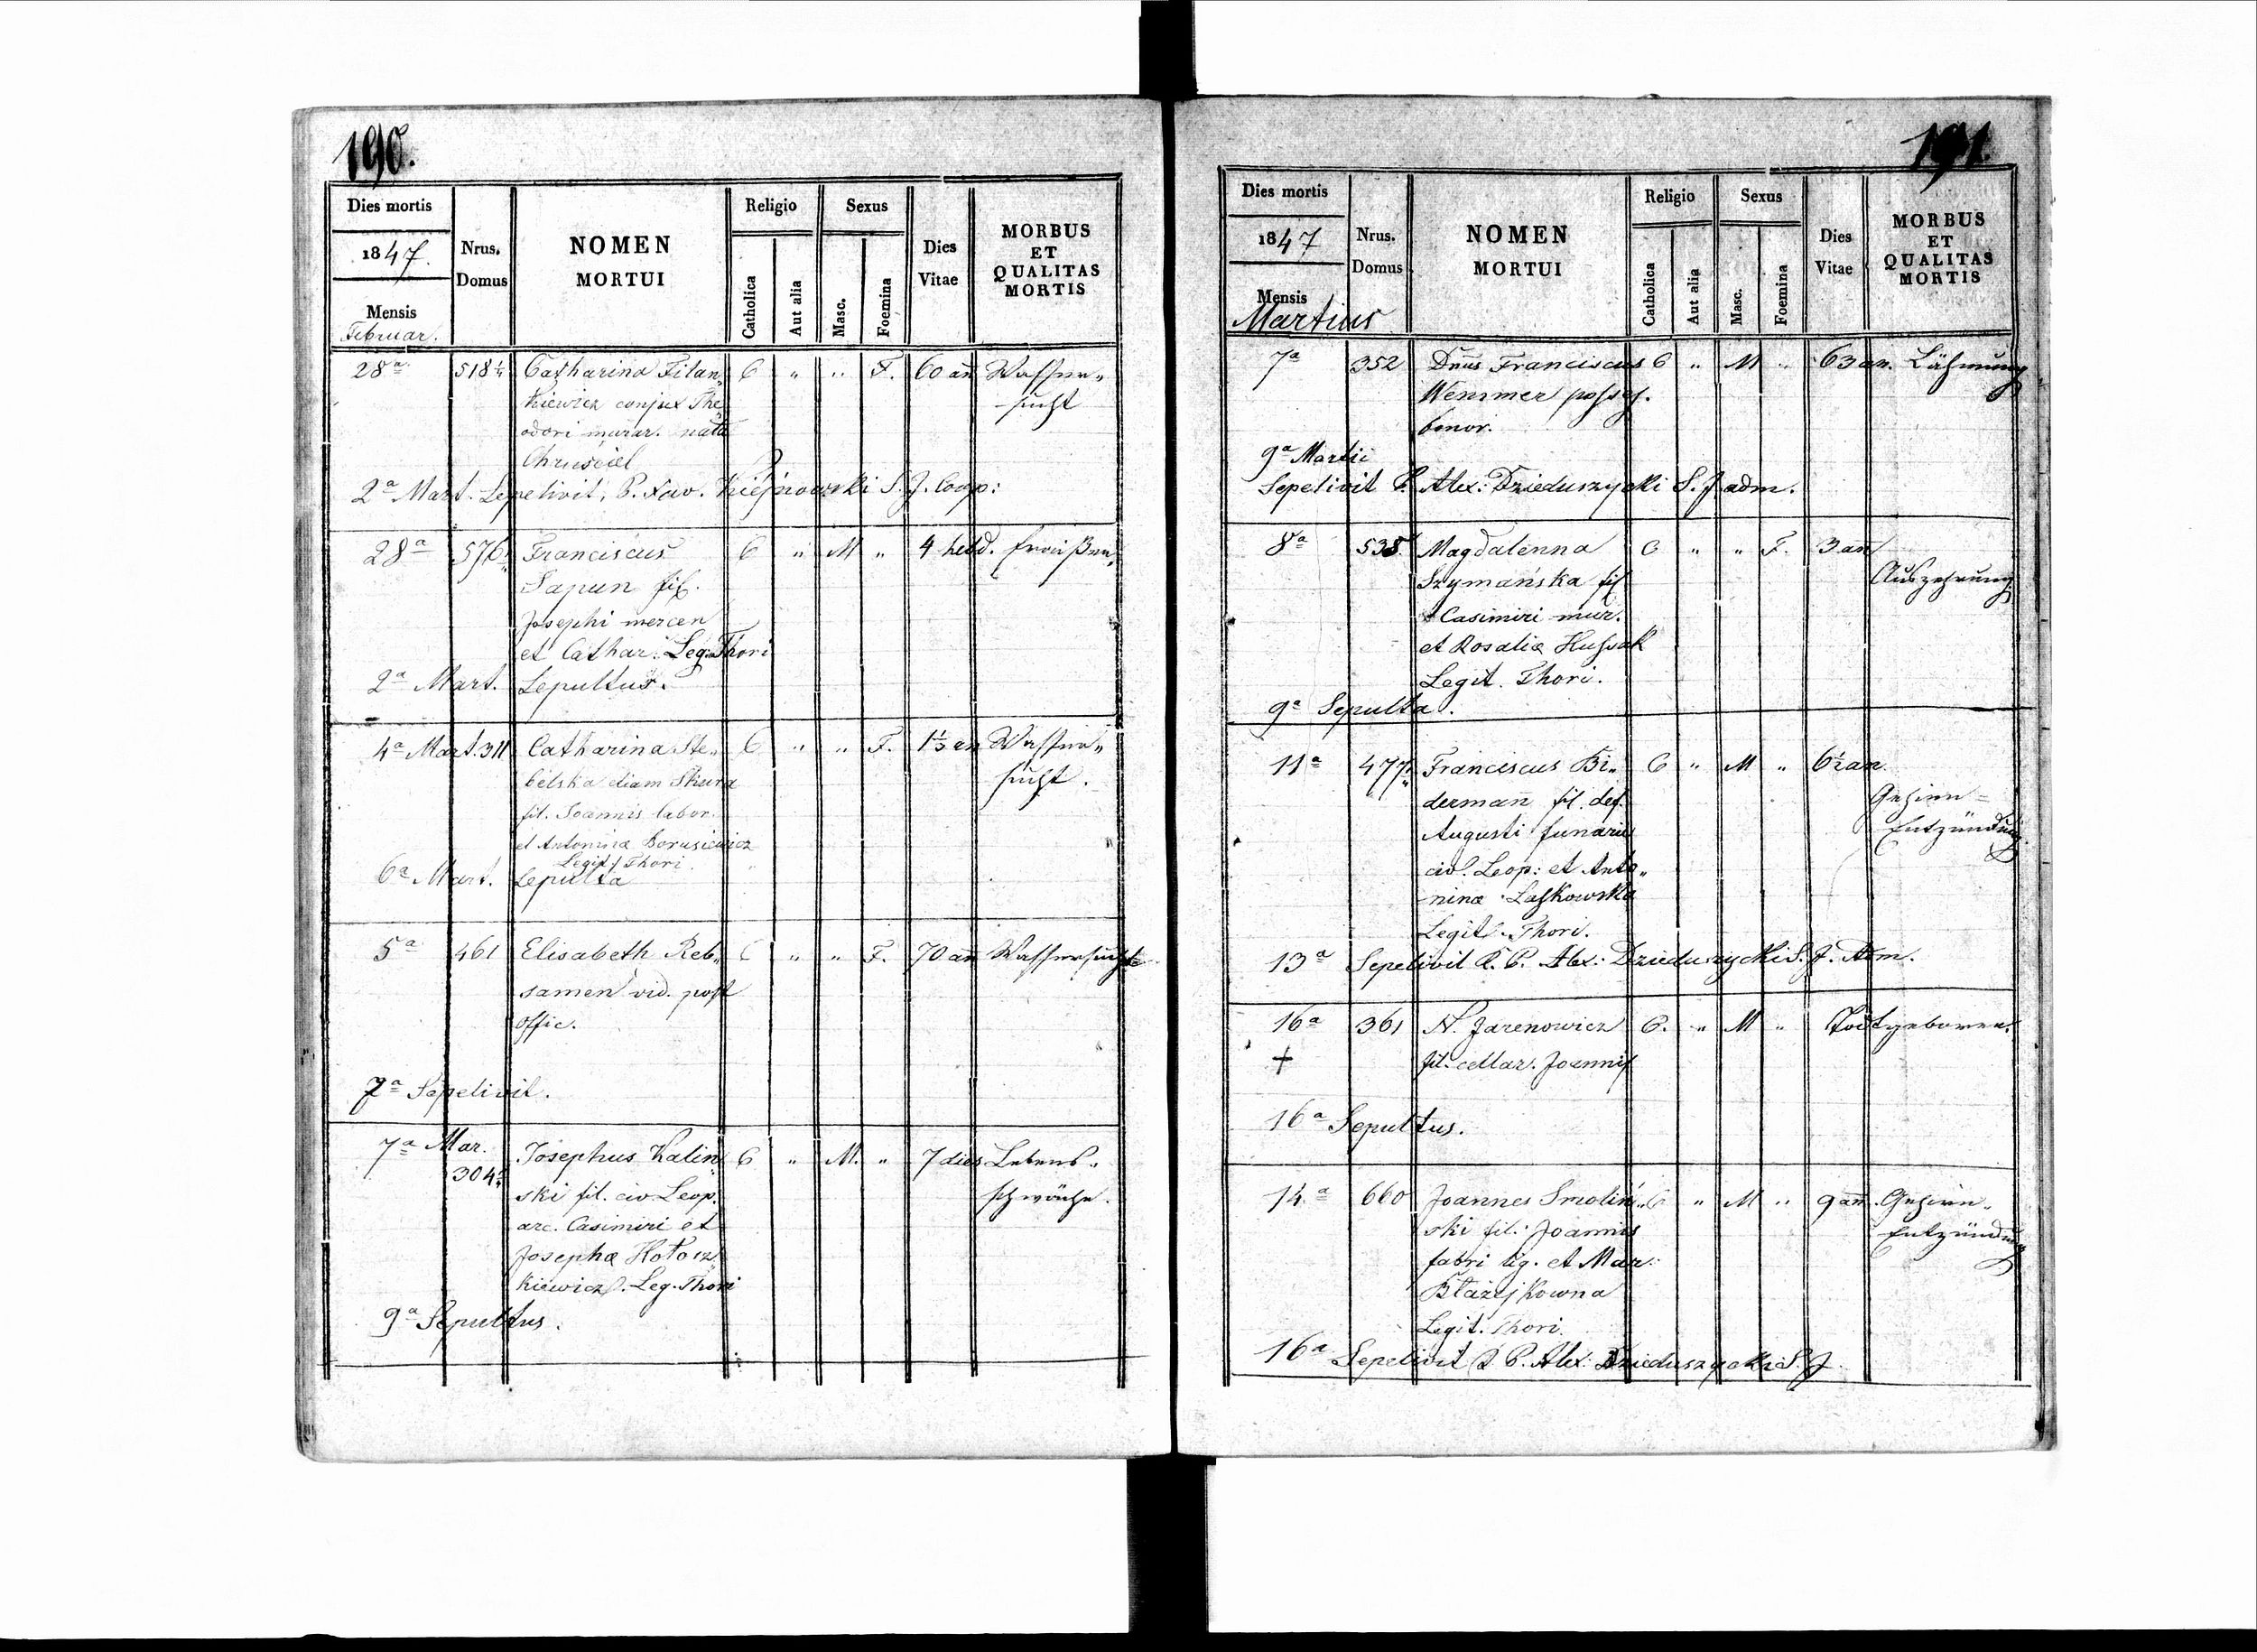 190.
Dies mortis
1847.
Mensis
Februar.
Nrus.
Domus
NOMEN
MORTUI
Religio
Catholica
Aut alia
Sexus
Masc.
Foemina
Dies
Vitae
MORBUS
ET
QUALITAS
MORTIS
28a 518¼ Catharina Filan„ C „ „ F. 60 an̄ Wasser„
kiewicz conjux The sucht
odori murar. nata
Chruściel
2a Mart. Sepelivit, P. Xav. Kiejnowski S. J. Coop:
28a 576 Franciscus C „ M „ 4 hebd. Fraißen
Sapun fil.
Josephi mercen
et Cathar: Leg. Thori
2a Mart. Sepultus.
4a Mart. 311 Catharina Ste„ C „ „ F. 1½ an Wasser„
belska etiam Skura sucht.
fil. Joannis labor.
et Antonina Borusiewicz
Legit. Thori.
6a Mart. Sepulta
5a 461 Elisabeth Reb„ C „ „ F. 70 an̄ Wassersucht
samen vid. post
offic.
7a Sepelivit.
7a Mar. Josephus Kalin C „ M. „ 7 dies Lebens„
304 ski fil. civ. Leop. schwäche.
arc. Casimiri et
Josepha Hołosz
kiewicz. Leg. Thori
9a Sepultus.
191.
Dies mortis
1847
Mensis
Martius
Nrus.
Domus
NOMEN
MORTUI
Religio
Catholica
Aut alia
Sexus
Masc.
Foemina
Dies
Vitae
MORBUS
ET
QUALITAS
MORTIS
7a 352 Dnus Franciscus C „ M „ 63 an. Lähmung
Wemmer posses.
bonor.
9a Martii
Sepelivit P. Alex: Dzieduszycki S. J adm.
8a 538 Magdalenna C „ „ F. 3 an̄
Szymańska fil Auszehrung
Casimiri mur.
et Rosalia Hussak
Legit. Thori.
9a Sepulta.
11a 477 Franciscus Bi„ C „ M „ 6½ an.
derman̄ fil. def. Gehirn=
Augusti funarii Entzündung
civ. Leop: et Anto„
nina Laskowska
Legit. Thori.
13a Sepelivit R. P. Alex: Dzieduszycki S. J. Adm.
16a 361 N. Jarenowicz C. „ M „ Todtgeboren.
+ fil. cellar. Joannis
16a Sepultus.
14a 660 Joannes Smoliń„ C „ M „ 9 an̄. Gehirn„
ski fil. Joannis Entzündung
fabri lig. et Mar:
Błażejkowna
Legit. Thori.
16a Sepelivit R P. Alex: Dzieduszycki S. J.